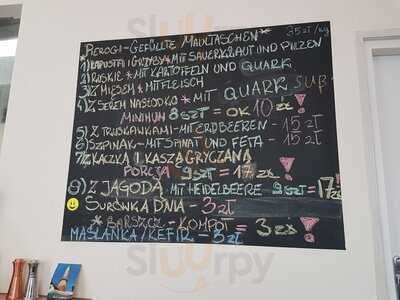 *PEROGI-GEFÜLLTE MAULTASCHEN* 35zł/kg
1) KAPUSTA I GRZYBY*MIT SAUERKRAUT UND PILZEN
2) RUSKIE*MIT KARTOFFELN UND QUARK
3) Z MIĘSEM*MIT FLEISCH
4) Z SEREM NASŁODKO*MIT QUARK SÜß
MINIMUM 8szt = OK 10 zł!
5) Z TRUSKAWKAMI-MIT ERDBEEREN - 15 zł
6) SZPINAK-MIT SPINAT UND FETA - 15 zł
7) KACZKA I KASZA GRYCZANA
PORCJA 9szt = 17 zł!
8) Z JAGODĄ MIT HEIDELBEERE 9szt=17zł!
SURÓWKA DNIA - 3zł
*BARSZCZ - KOMPOT = 3zł!
MAŚLANKA/KEFIR - 3zł
Sluurpy